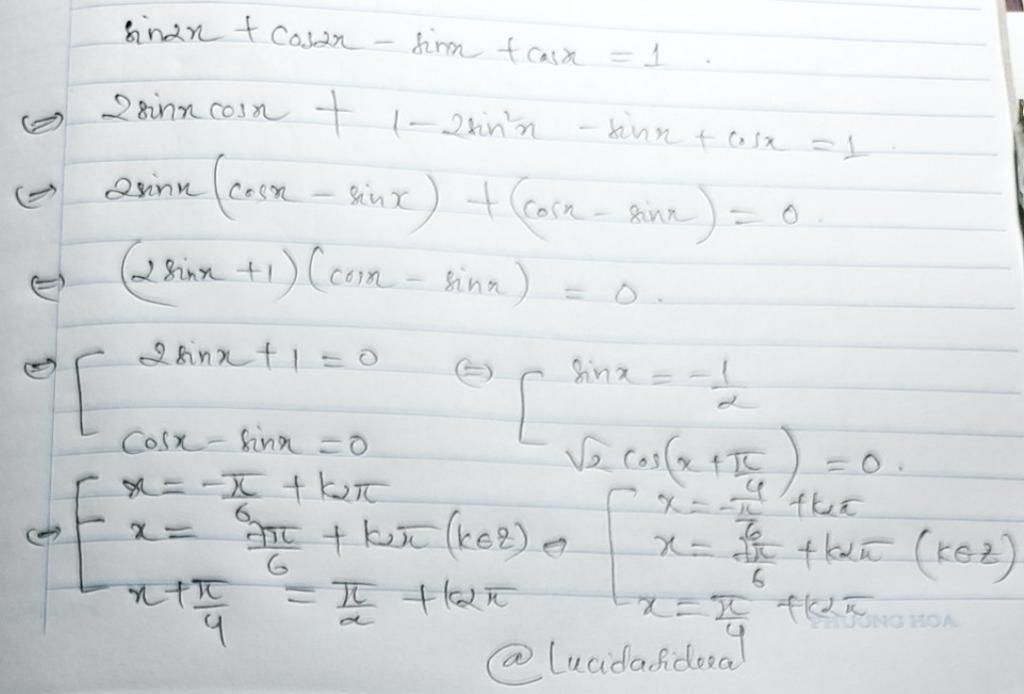 sin2x + cos2x - sinx + cosx = 1.
⇔ 2sinx cosx + 1 - 2sin²x - sinx + cosx = 1.
⇔ 2sinx (cosx - sinx) + (cosx - sinx) = 0.
⇔ (2sinx + 1)(cosx - sinx) = 0.
⇔ [ 2sinx + 1 = 0 ⇔ [ sinx = -1/2
cosx - sinx = 0 √2 cos(x + π/4) = 0.
⇔ [ x = -π/6 + k2π [ x = -π/6 + k2π
x = 7π/6 + k2π (k∈Z) ⇔ x = 7π/6 + k2π (k∈Z)
x + π/4 = π/2 + k2π x = π/4 + k2π
PHUONG HOA
@Lucidafidera